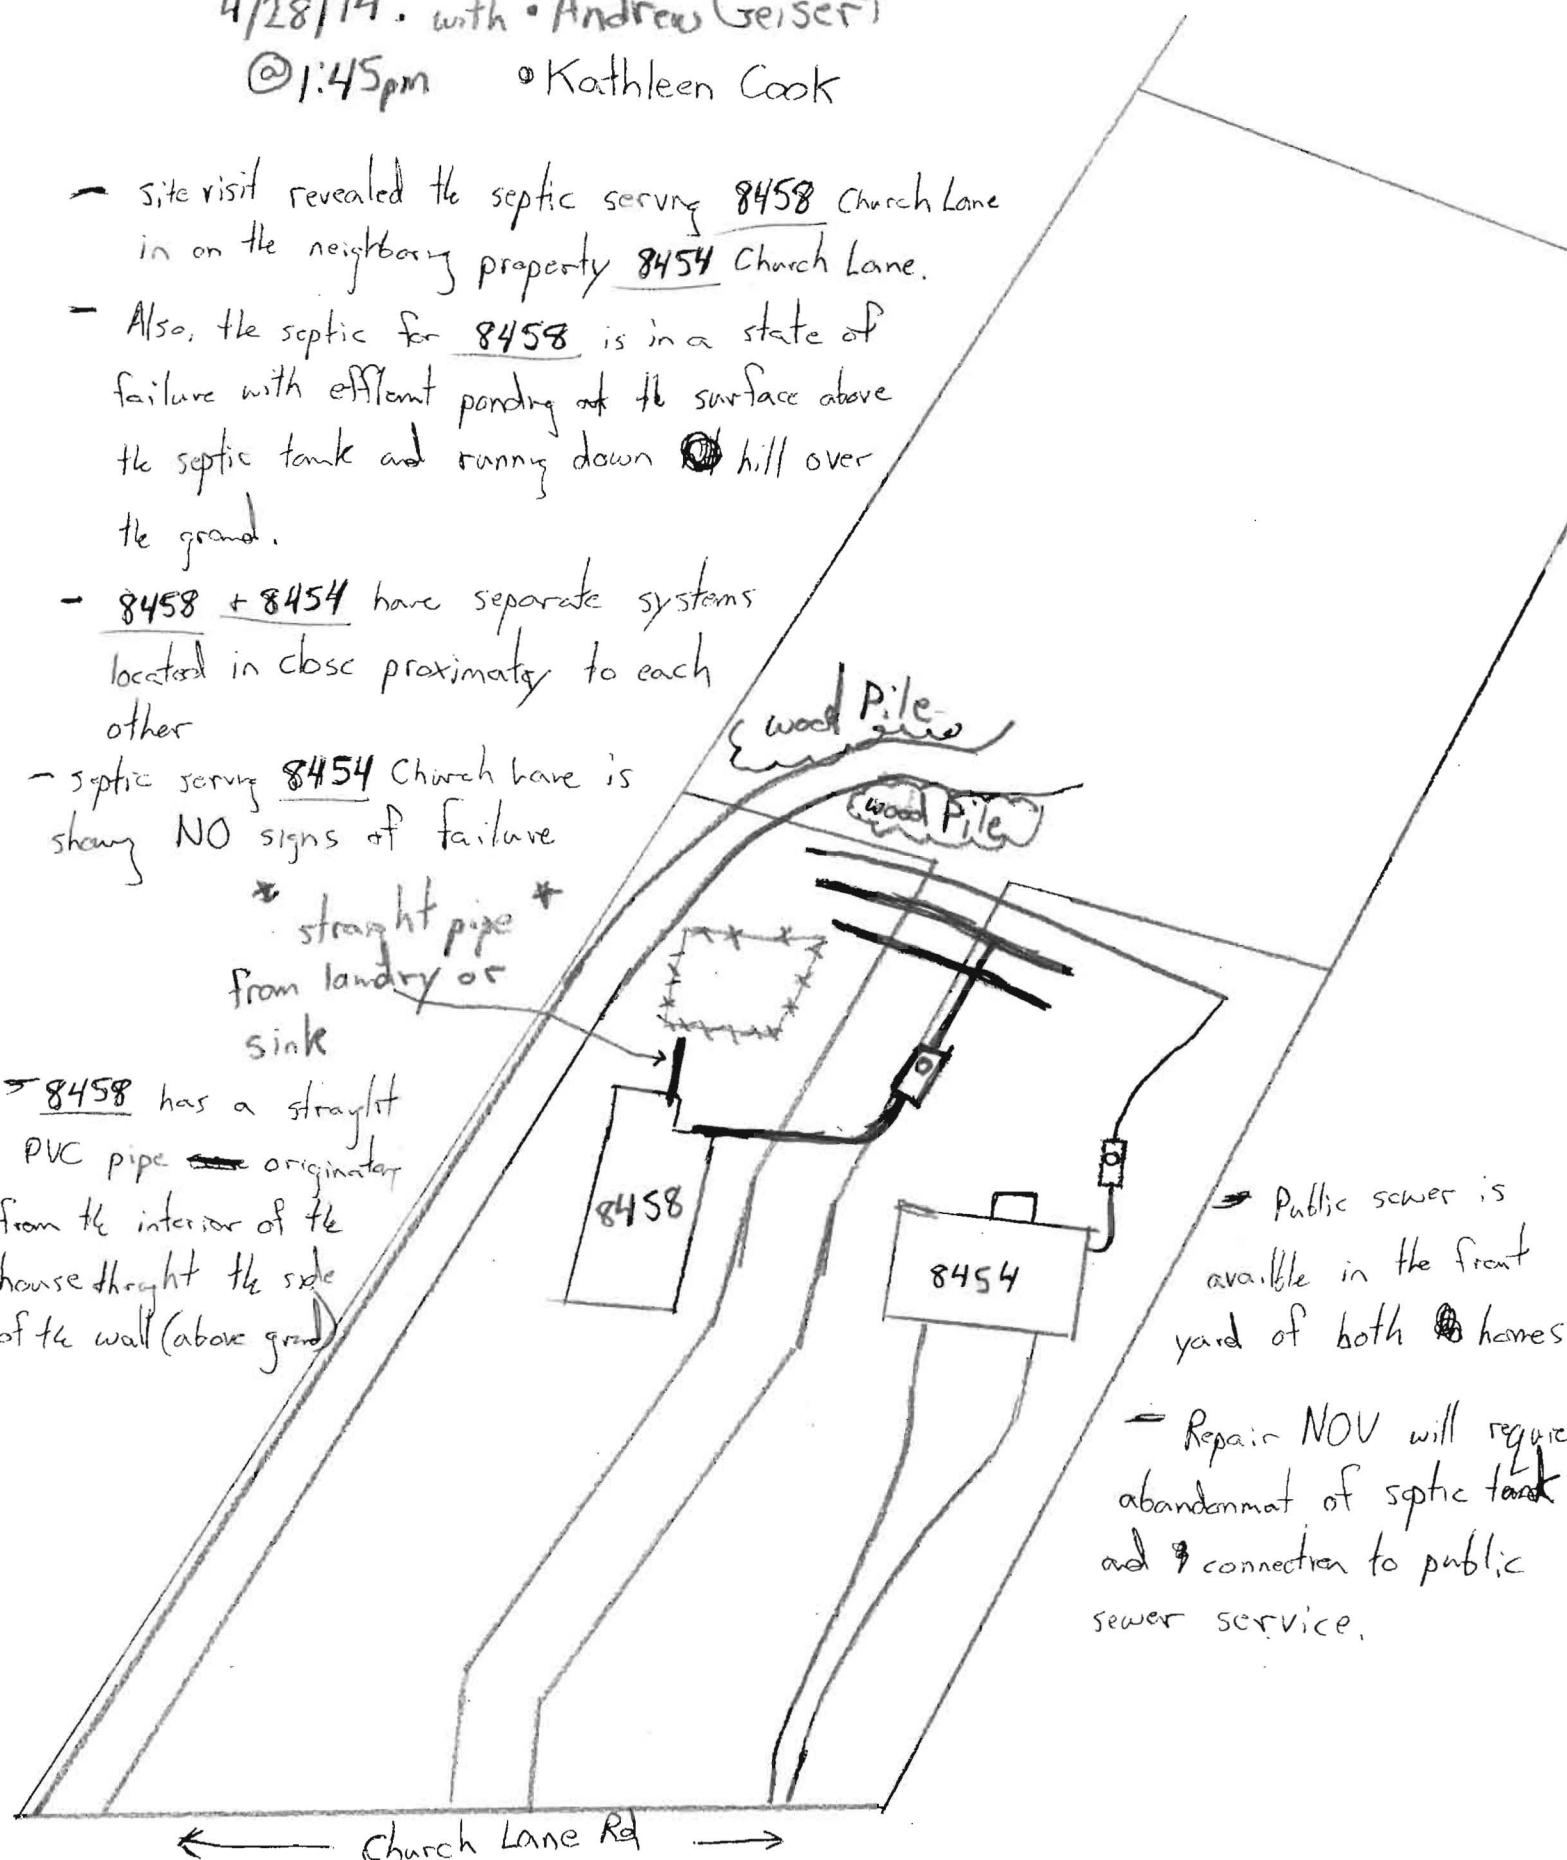 4/28/14. with • Andrew Geiser
@1:45pm • Kathleen Cook
- site visit revealed the septic servng 8458 Church Lane
in on the neighborng property 8454 Church Lane.
- Also, the septic for 8458 is in a state of
failure with efflent pondng at the surface above
the septic tank and runnng down hill over
the ground.
- 8458 + 8454 have separate systems
located in close proximaty to each
other
- septic servng 8454 Church Lane is
showng NO signs of failure
* straight pipe *
from landry or
sink
- 8458 has a straight
PVC pipe originatng
from the interior of the
house throght the side
of the wall (above grnd)
wood Pile
wood Pile
8458
8454
- Public sewer is
availble in the front
yard of both homes
- Repair NOV will require
abandonmat of septic tank
and connection to public
sewer service.
← Church Lane Rd →